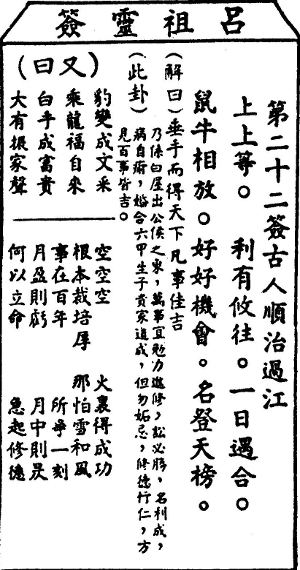 呂祖靈簽
第二十二簽古人順治過江
上上等。 利有攸往。一日遇合。
鼠牛相放。好好機會。名登天榜。
(解曰)垂手而得天下凡事佳吉
(此卦)乃係白屋出公侯之象,萬事宜勉力進修,訟必勝,名利成,
病自瘳,婚合六甲生子貴家道成,但勿妬忌,修德行仁,方
見百事皆吉。
(又曰)
豹變成文采
乘龍福自來
白手成富貴
大有振家聲
空空空 火裏得成功
根本栽培厚 那怕雪和風
事在百年 所爭一刻
月盈則虧 月中則昃
何以立命 急起修德